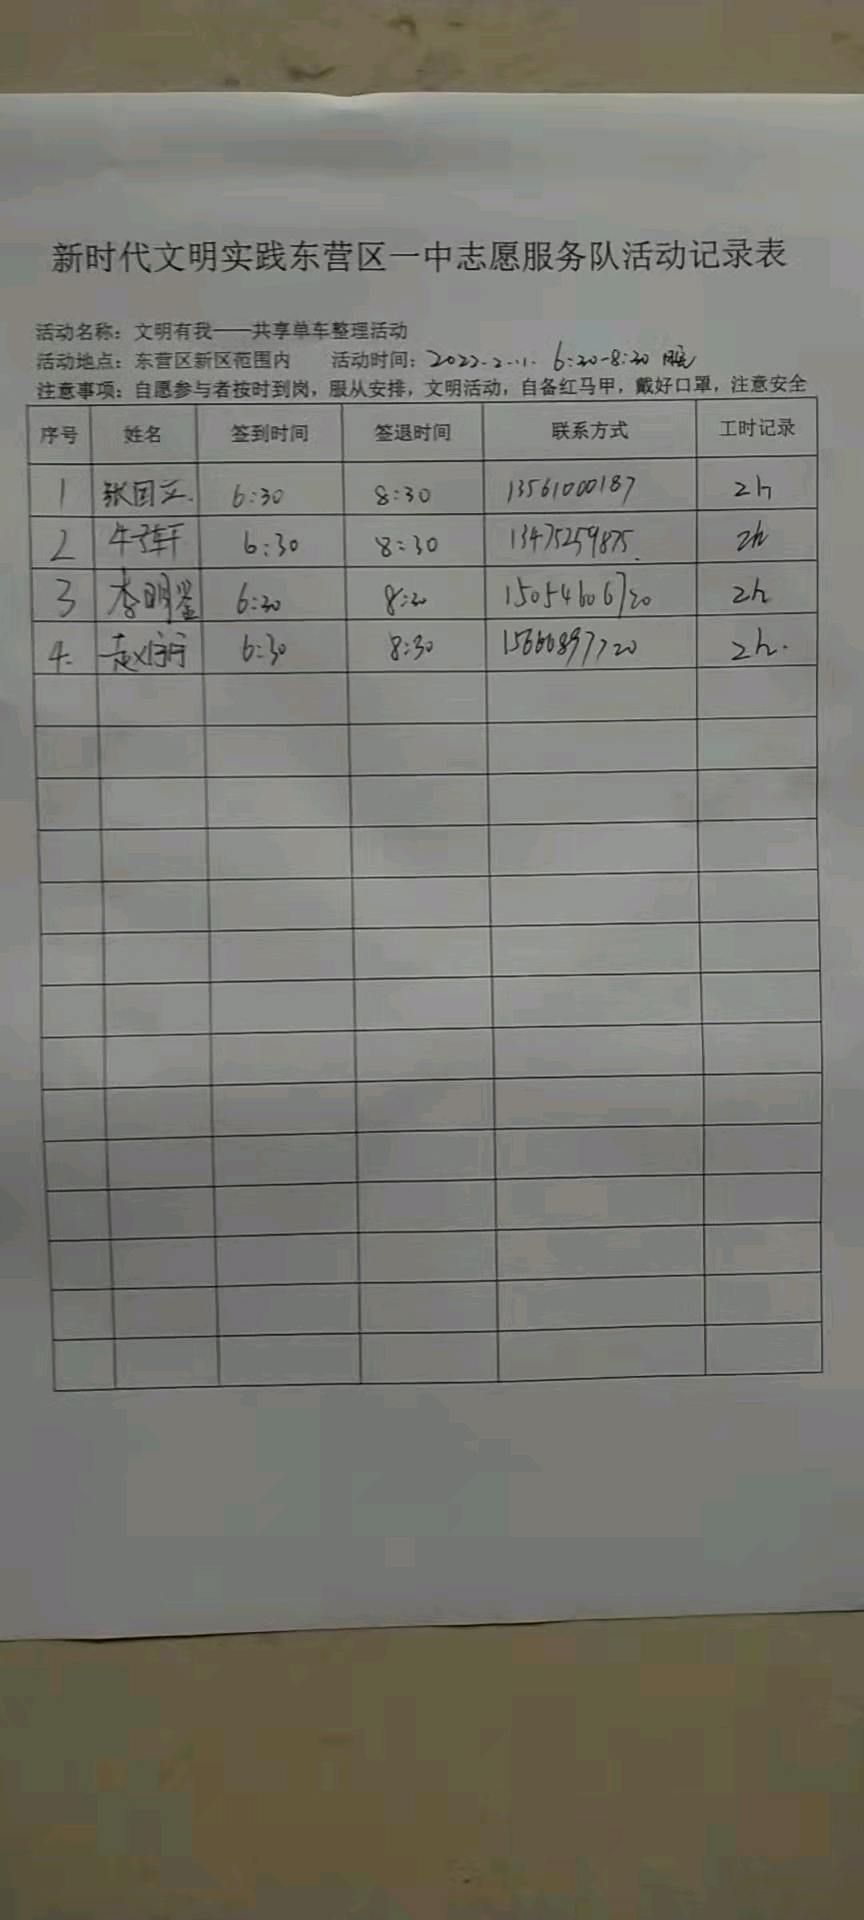 新时代文明实践东营区一中志愿服务队活动记录表
活动名称：文明有我——共享单车整理活动
活动地点：东营区新区范围内 活动时间：2022.2.1. 6:30-8:30
注意事项：自愿参与者按时到岗，服从安排，文明活动，自备红马甲，戴好口罩，注意安全
序号 姓名 签到时间 签退时间 联系方式 工时记录
1 张国立 6:30 8:30 13561000187 2h
2 牛子轩 6:30 8:30 13475259875 2h
3 李明鉴 6:30 8:30 15054606720 2h
4. 赵 6:30 8:30 15666897720 2h.